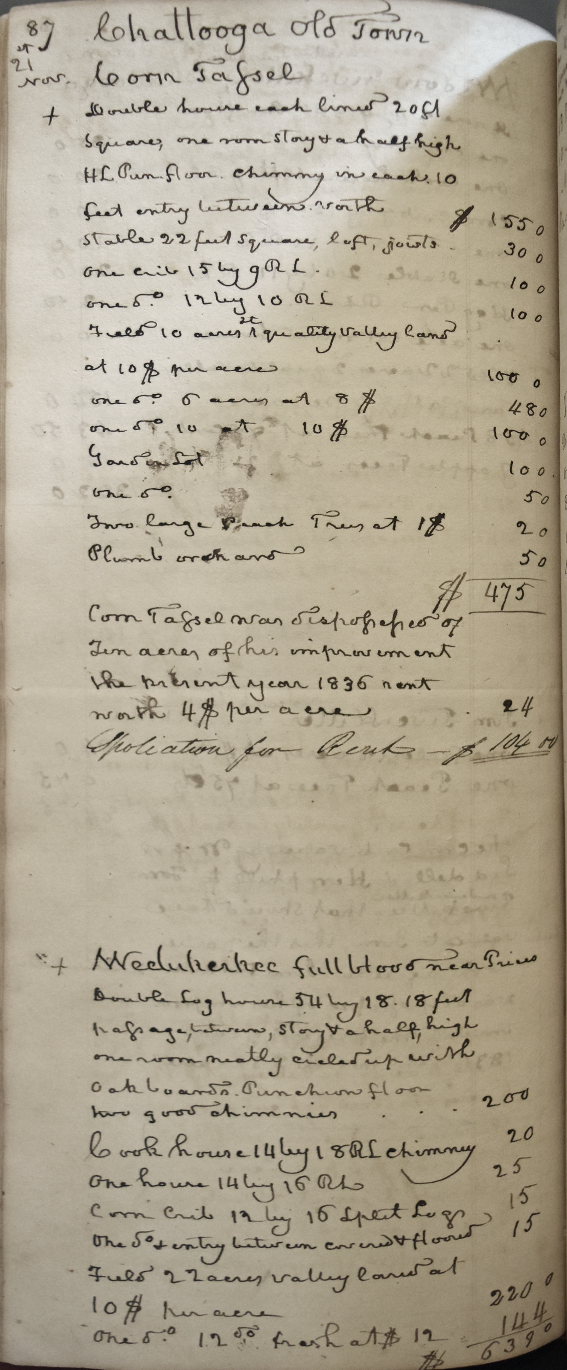 87 Chattooga Old Town
21
Nov. Corn Tassel
+ Double house each lined 20 ft
Square, one room story & a half high
HL Pun. floor. chimny in each. 10
feet entry between. worth $ 155 0
Stable 22 feet square, loft, joists. 30 0
one crib 15 by 9 RL. 10 0
one do. 12 by 10 RL 10 0
Field 10 acres 1st quality valley land
at 10$ per acre 100 0
one do 6 acres at 8$ 48 0
one do. 10 at 10$ 100 0
Garden Lot 10 0
one do. 5 0
Two large Peach Trees at 1$ 2 0
Plumb orchard 5 0
$ 475
Corn Tassel was dispossessed of
Ten acres of his improvement
the present year 1836 rent
worth 4$ per acre . 24
Spoliation for Rent - $ 104 00
+ full blood near
Double Log house 54 by 18. 18 feet
passage, between, story & a half, high
one room neatly cieled up with
Oak boards. Puncheon floor
two good chimnies . . . 200
Cook house 14 by 18 RL chimney 20
One house 14 by 16 RL 25
Corn Crib 12 by 16 Split Logs 15
One do & entry between covered & floored 15
Field 22 acres valley land at
10$ per acre 220 0
One do. 12 do fresh at $ 12 144
$ 639 0